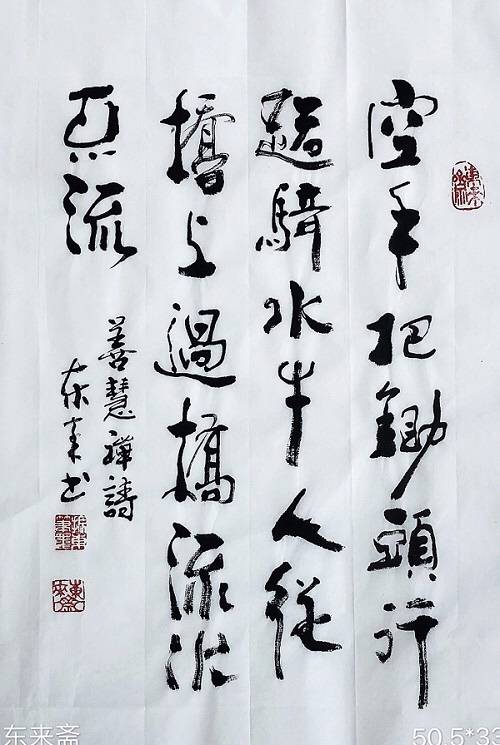 空手把鋤頭行
騎水牛人從
橋上過橋流水
流
善慧禪詩
东来书
东来斋
50.5*33